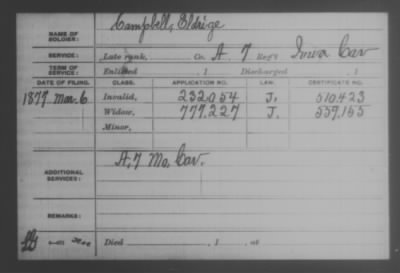 NAME OF SOLDIER: Campbell, Eldrige
SERVICE: Late rank, Co. A 7 Reg't Iowa Cav
TERM OF SERVICE: Enlisted , 1 Discharged , 1
DATE OF FILING. CLASS. APPLICATION NO. LAW. CERTIFICATE NO.
1877 Mar. 6 Invalid, 232054 J. 510.423
Widow, 777.227 J. 559,155
Minor,
ADDITIONAL SERVICES: A, 7 Mo. Cav.
REMARKS:
Died , 1 , at